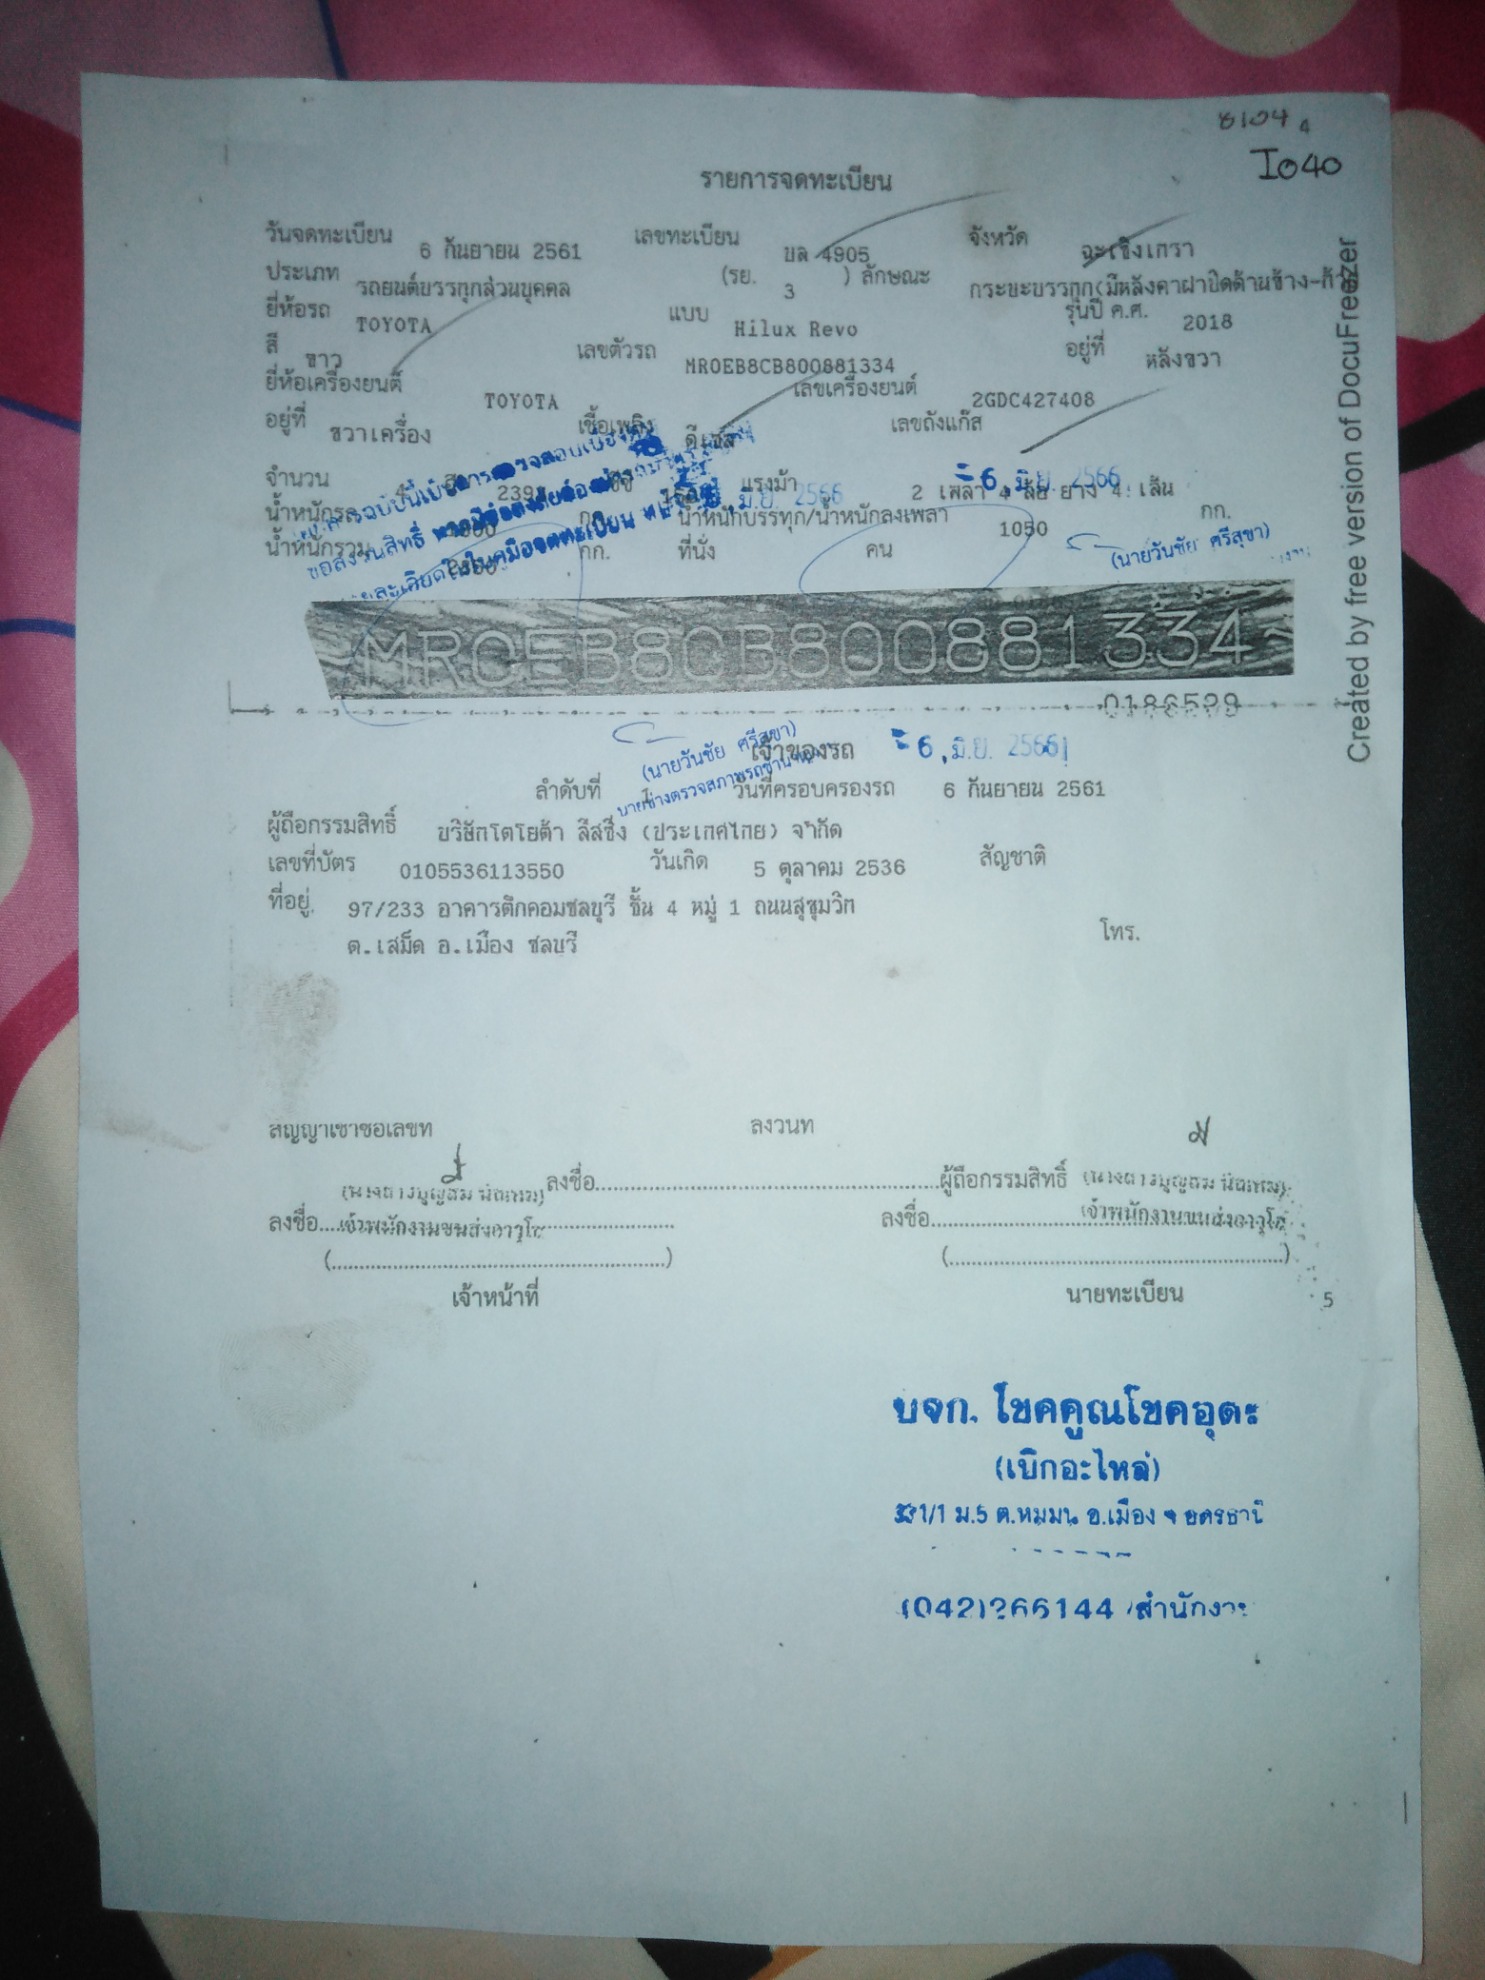 8104 4
I040
รายการจดทะเบียน
วันจดทะเบียน 6 กันยายน 2561 เลขทะเบียน บล 4905 จังหวัด ฉะเชิงเทรา
ประเภท รถยนต์บรรทุกส่วนบุคคล (รย. 3 ) ลักษณะ กระบะบรรทุก(มีหลังคาฝาปิดด้านข้าง-ท้าย
ยี่ห้อรถ TOYOTA แบบ Hilux Revo รุ่นปี ค.ศ. 2018
สี ขาว เลขตัวรถ MR0EB8CB800881334 อยู่ที่ หลังขวา
ยี่ห้อเครื่องยนต์ TOYOTA เลขเครื่องยนต์ 2GDC427408
อยู่ที่ ขวาเครื่อง เชื้อเพลิง ดีเซล เลขถังแก๊ส
จำนวน แรงม้า 2 เพลา 4 ล้อ ยาง 4 เส้น
6 มิ.ย. 2566
6 มิ.ย. 2566
น้ำหนักรถ กก. น้ำหนักบรรทุก/น้ำหนักลงเพลา 1050 กก.
น้ำหนักรวม กก. ที่นั่ง คน
(นายวันชัย ศรีสุขา)
MR0EB8CB800881334
0186529
เจ้าของรถ 6 มิ.ย. 2566
(นายวันชัย ศรีสุขา)
นายช่างตรวจสภาพรถ
ลำดับที่ 1 วันที่ครอบครองรถ 6 กันยายน 2561
ผู้ถือกรรมสิทธิ์ บริษัทโตโยต้า ลีสซิ่ง (ประเทศไทย) จำกัด
เลขที่บัตร 0105536113550 วันเกิด 5 ตุลาคม 2536 สัญชาติ
ที่อยู่ 97/233 อาคารตึกคอมชลบุรี ชั้น 4 หมู่ 1 ถนนสุขุมวิท
ต.เสม็ด อ.เมือง ชลบุรี โทร.
สัญญาเช่าซื้อเลขที่ ลงวันที่
ลงชื่อ ผู้ถือกรรมสิทธิ์
ลงชื่อ เจ้าพนักงานขนส่งอาวุโส ลงชื่อ เจ้าพนักงานขนส่งอาวุโส
เจ้าหน้าที่ นายทะเบียน
5
บจก. โชคคูณโชคอุดร
(เบิกอะไหล่)
331/1 ม.5 ต.หมูม่น อ.เมือง จ.อุดรธานี
(042)266144 /สำนักงาน
Created by free version of DocuFreezer